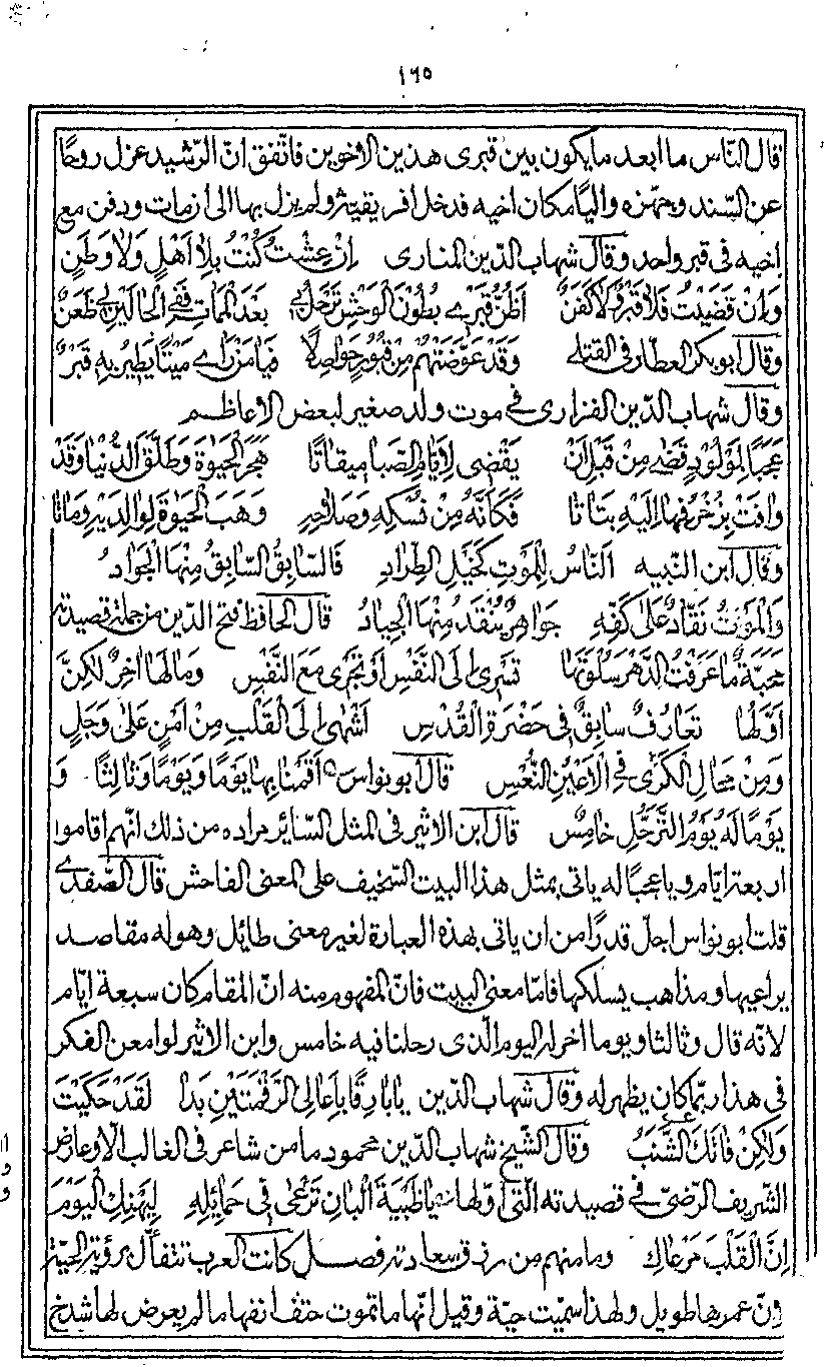 ١٦٥
قال النّاس ما ابعد ما يكون بين قبرى هذين الاخوين فاتّفق انّ الرّشيد عزل روحًا
عن السّند وجهّزه واليًا مكان اخيه فدخل افريقيّة ولم يزل بها الى ان مات ودفن مع
اخيه فى قبر واحد وقال شهاب الدّين المنارى اِنْ عِشْتُ كُنْتُ بِلاٰ اَهْلٍ وَلاٰ وَطَنٍ
وَاِنْ قَضَيْتُ فَلاٰ قَبْرٌ وَلاٰ كَفَنٌ اَظُنُّ قَبْرِى بُطُونَ الْوَحْشِ تَرْحَلُ بِى بَعْدَ الْمَمٰاتِ فَفِى الْحٰالَيْنِ لِى ظَعَنٌ
وقال ابو بكر العطار فى القتلى وَقَدْ عَوَّضَتْهُمْ مِنْ قُبُورٍ حَوٰاصِلًا فَيٰا مَنْ رَاٰى مَيْتًا يَطِيرُ بِهِ قَبْرٌ
وقال شهاب الدّين الفزارى فى موت ولد صغير لبعض الاعاظم
عَجَبًا لِمَوْلُودٍ قَضٰى مِنْ قَبْلِ اَنْ يَقْضِى لِاَيّٰامِ الصَّبٰا مِيقٰاتًا هَجَرَ الْحَيٰوةَ وَطَلَّقَ الدُّنْيٰا وَقَدْ
وٰافَتْ بِزُخْرُفِهٰا اِلَيْهِ بَتٰاتًا فَكَاَنَّهُ مِنْ نُسْكِهِ وَصَلاٰحِهِ وَهَبَ الْحَيٰوةَ لِوٰالِدَيْهِ وَمٰاتٰا
وقال ابن النّبيه اَلنّٰاسُ لِلْمَوْتِ كَخَيْلِ الطِّرٰادِ فَالسّٰابِقُ السّٰابِقُ مِنْهَا الْجَوٰادُ
وَالْمَوْتُ نَقّٰادٌ عَلٰى كَفِّهِ جَوٰاهِرٌ يَنْقُدُ مِنْهَا الْجِيٰادُ قال الحافظ فتح الدّين من جملة قصيدته
مَحَبَّةٌ مٰا عَرَفْتُ الدَّهْرَ سَلْوَتَهٰا تَسْرِى اِلَى النَّفْسِ اَوْ تَجْرِى مَعَ النَّفْسِ وَمٰا لَهٰا اٰخِرٌ لٰكِنَّ
اَوَّلَهٰا تَعٰارُفٌ سٰابِقٌ فِى حَضْرَةِ الْقُدْسِ اَشْهٰى اِلَى الْقَلْبِ مِنْ اَمْنٍ عَلٰى وَجَلٍ
وَمِنْ مَجٰالِ الْكَرٰى فِى الْاَعْيُنِ النُّعْسِ قال ابو نواس اَقَمْنٰا بِهٰا يَوْمًا وَيَوْمًا وَثٰالِثًا وَ
يَوْمًا لَهُ يَوْمُ التَّرَحُّلِ خٰامِسٌ قال ابن الاثير فى المثل السّائر مراده من ذلك انّهم اقاموا
اربعة ايّام ويا عجبًا له ياتى بمثل هذا البيت السّخيف على المعنى الفاحش قال الصّفدى
قلت ابو نواس اجلّ قدرًا من ان ياتى بهذه العبارة لغير معنى طائل وهو له مقاصد
يراعيها ومذاهب يسلكها فامّا معنى البيت فانّ المفهوم منه انّ المقام كان سبعة ايّام
لانّه قال وثالثا ويوما اخر له اليوم الّذى رحلنا فيه خامس وابن الاثير لو امعن الفكر
فى هذا ربّما كان يظهر له وقال شهاب الدّين يٰا بٰارِقًا بِاَعٰالِى الرَّقْمَتَيْنِ بَدٰا لَقَدْ حَكَيْتَ
وَلٰكِنْ فٰاتَكَ الشَّنَبُ وقال الشّيخ شهاب الدّين محمود ما من شاعر فى الغالب الّا وعارض
الشّريف الرّضىّ فى قصيدته الّتى اوّلها يٰا ظَبْيَةَ الْبٰانِ تَرْعٰى فِى خَمٰائِلِهِ لِيَهْنِكِ الْيَوْمَ
اِنَّ الْقَلْبَ مَرْعٰاكِ وما منهم من رزق سعادته فصل كانت العرب تتفأّل برؤية الحيّة
ونّ عمرها طويل ولهذا سمّيت حيّة وقيل انّها ما تموت حتف انفها ما لم يعرض لها شدخ